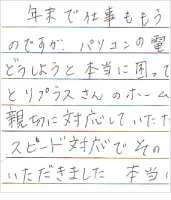 年末で仕事ももう
のですが、パソコンの電
どうしようと本当に困って
とリプラスさんのホーム
親切に対応していただ
スピード対応でその
いただきました 本当に